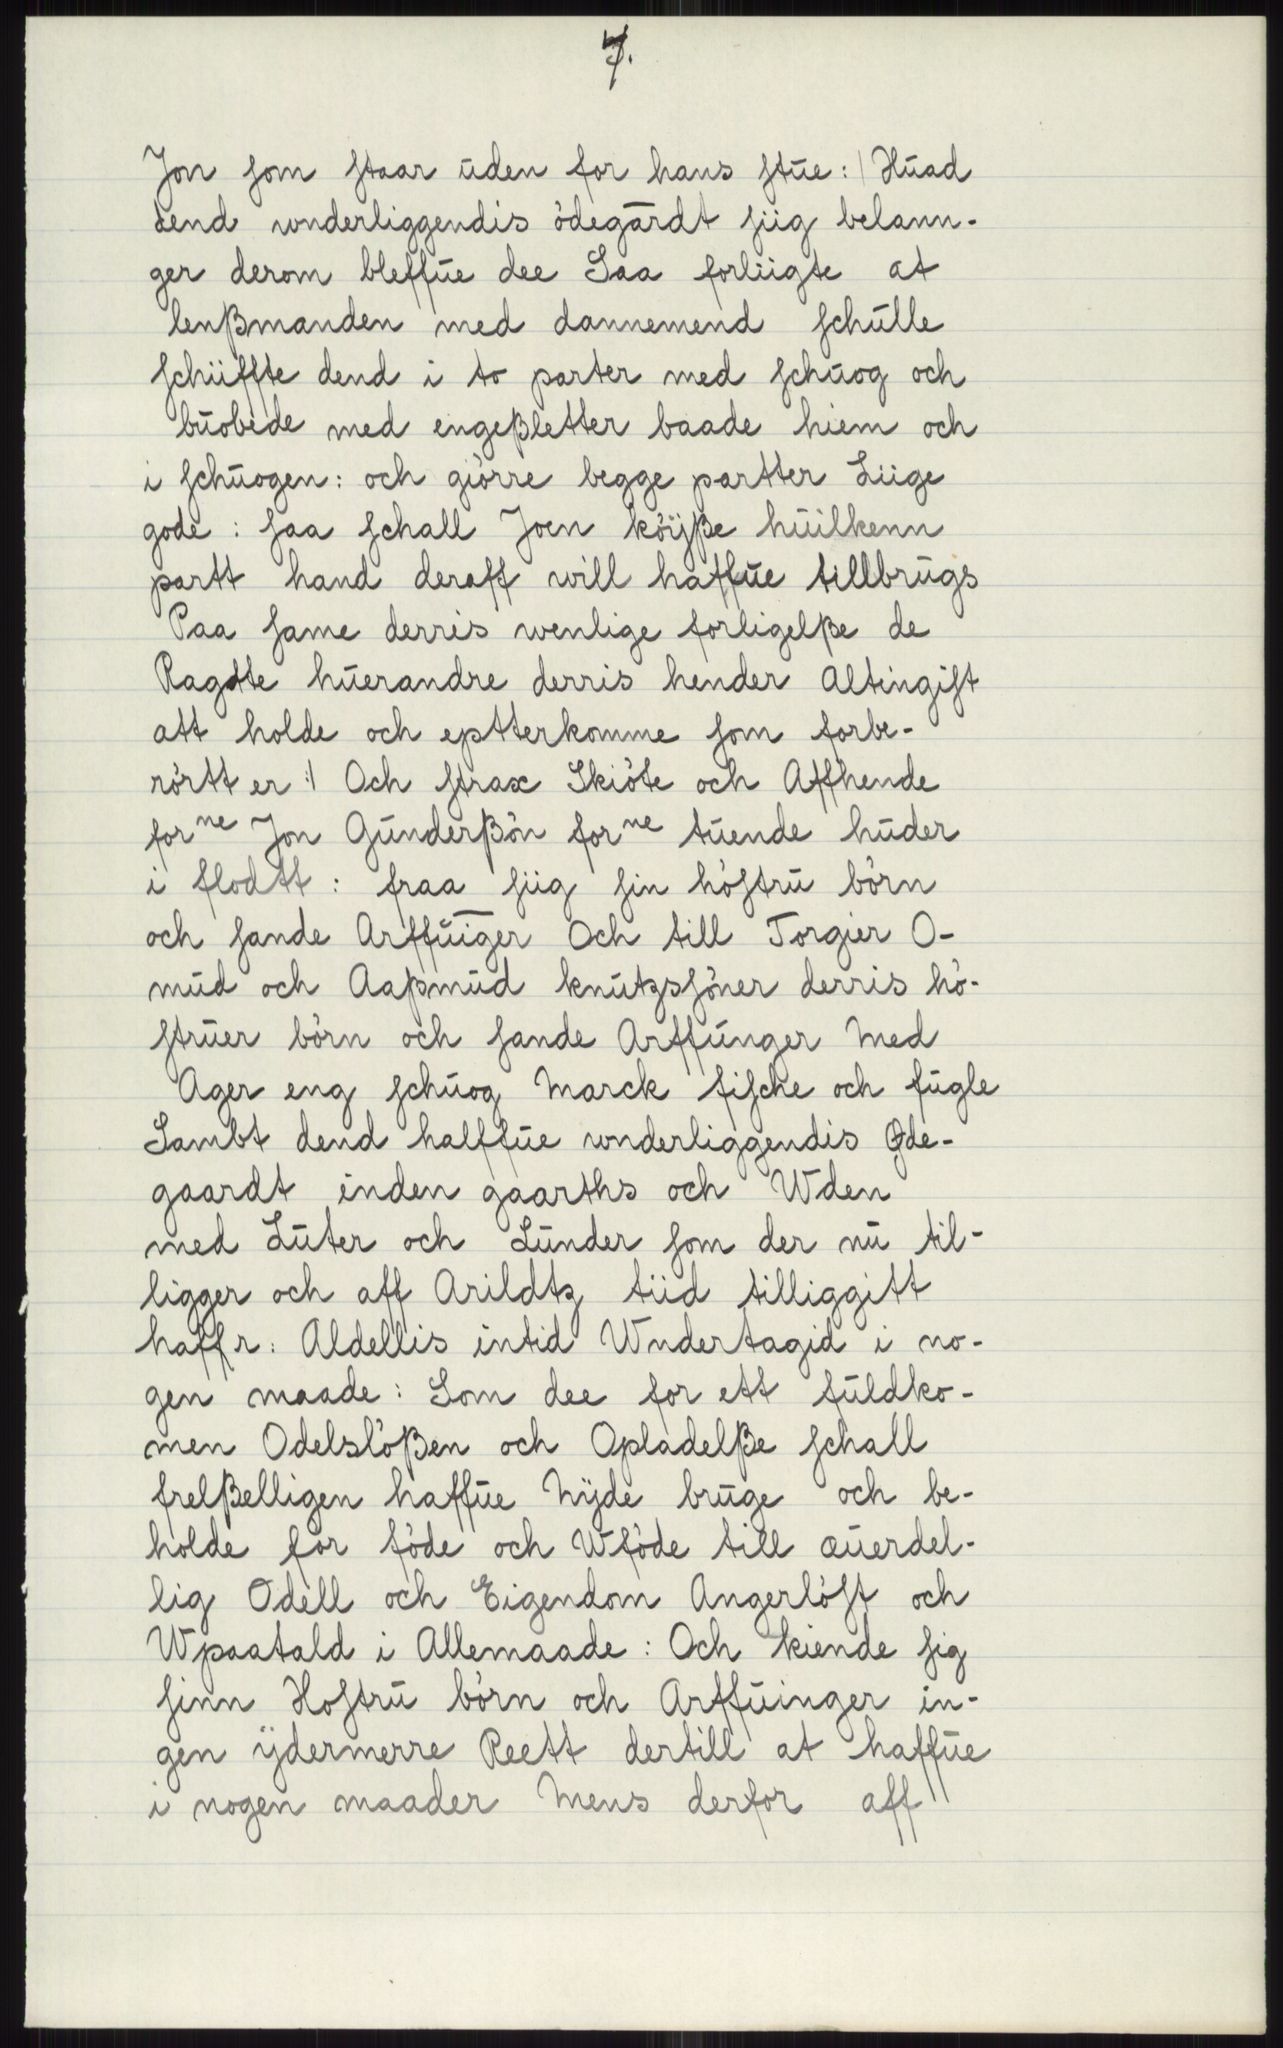 7.
Jon som staar uden for hans stue :/ Huad
dend wnderliggendis ödegardt siig belann-
ger derom bleffue dee Saa forliigte at
lenßmanden med dannemend schulle
schiiffte dend i to parter med schuog och
buobede med engeßletter baade hiem och
i schuogen: och giörre begge partter Liige
gode : saa schall Joen köÿße huilkenn
partt hand deraff will haffue tillbrugs
Paa same derris wenlige forligelße de
Ragtte huerandre derris hender Altingist
att holde och eptterkomme som forbe-
rörtt er :/ Och strax Skiöte och Affhende
forne Jon Gunderßön forne tuende huder
i flodtt : fraa siig sin höstru börn
och sande Arffuiger Och till Torgier O-
mud och Aaßmud knutzsöner derris hö-
struer börn och sande Arffunger Med
Ager eng schuog Marck fische och fugle
Sambt dend halffue wnderliggendis Øde-
gaardt inden gaarths och Wden
med Luter och Lunder som der nu til-
ligger och aff Arildtz tiid tilliggitt
haffr : Aldellis intid Wndertagid i no-
gen maade : Som dee for ett fuldko-
men Odelslößen och Opladelße schall
frelßelligen haffue Nÿde bruge och be-
holde for föde och Wföde till æuerdel-
lig Odell och Eigendom Angerlöst och
Wpaatald i Allemaade : Och kiende sig
sinn Hostru börn och Arffuinger in-
gen ÿdermerre Reett dertill at haffue
i nogen maader Mens derfor aff